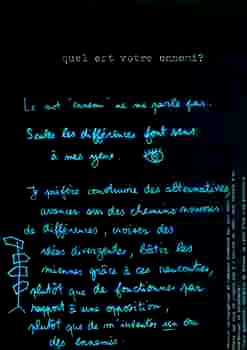 quel est votre ennemi?
Le mot "ennemi" ne me parle pas.
Seules les différences font sens
à mes yeux.
Je préfère construire des alternatives
avancer sur des chemins nouveaux
de différences, croiser des
idées divergentes, bâtir les
miennes grâce à ces rencontres,
plutôt que de fonctionner par
rapport à une opposition,
plutôt que de m'inventer un ou
des ennemis.